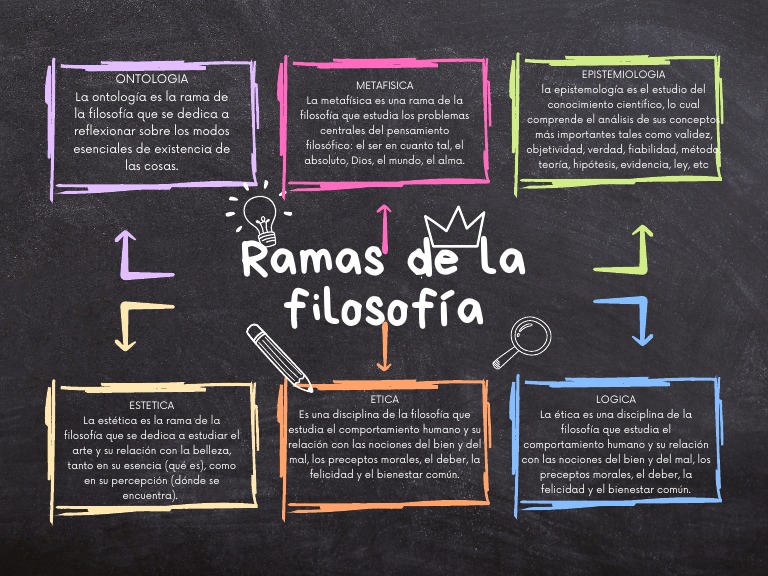 ONTOLOGIA
La ontología es la rama de
la filosofía que se dedica a
reflexionar sobre los modos
esenciales de existencia de
las cosas.
METAFISICA
La metafísica es una rama de la
filosofía que estudia los problemas
centrales del pensamiento
filosófico: el ser en cuanto tal, el
absoluto, Dios, el mundo, el alma.
EPISTEMIOLOGIA
la epistemología es el estudio del
conocimiento científico, lo cual
comprende el análisis de sus conceptos
más importantes tales como validez,
objetividad, verdad, fiabilidad, método,
teoría, hipótesis, evidencia, ley, etc
Ramas de la
filosofía
ESTETICA
La estética es la rama de la
filosofía que se dedica a estudiar el
arte y su relación con la belleza,
tanto en su esencia (qué es), como
en su percepción (dónde se
encuentra).
ETICA
Es una disciplina de la filosofía que
estudia el comportamiento humano y su
relación con las nociones del bien y del
mal, los preceptos morales, el deber, la
felicidad y el bienestar común.
LOGICA
La ética es una disciplina de la
filosofía que estudia el
comportamiento humano y su relación
con las nociones del bien y del mal, los
preceptos morales, el deber, la
felicidad y el bienestar común.